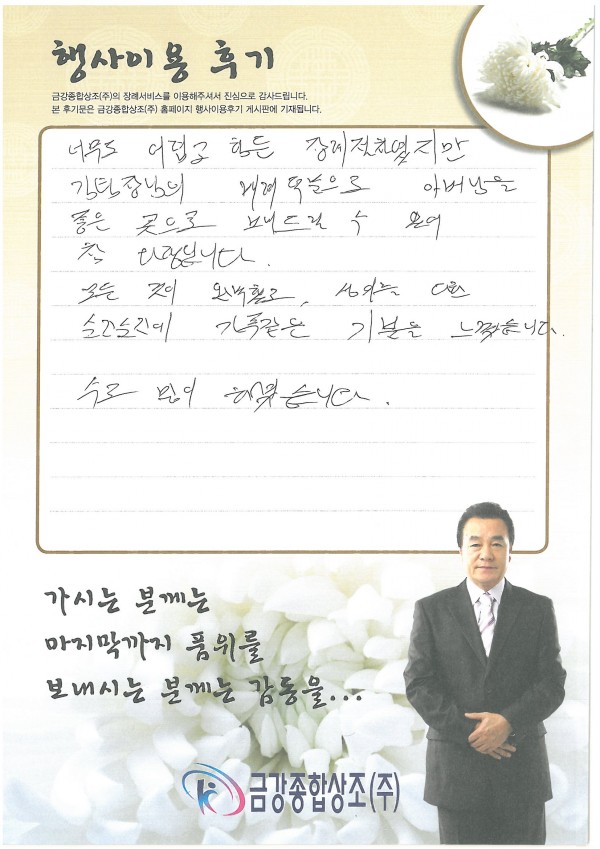 행사이용 후기
금강종합상조(주)의 장례서비스를 이용해주셔서 진심으로 감사드립니다.
본 후기문은 금강종합상조(주) 홈페이지 행사이용후기 게시판에 기재됩니다.
너무도 어렵고 힘든 장례절차였지만
김팀장님의 덕분으로 아버님을
좋은 곳으로 보내드릴 수 있어
참 다행입니다.
모든 것이 완벽했고,
순간순간에 가족같은 기분을 느꼈습니다.
수고 많이 하셨습니다.
가시는 분께는
마지막까지 품위를
보내시는 분께는 감동을...
금강종합상조(주)